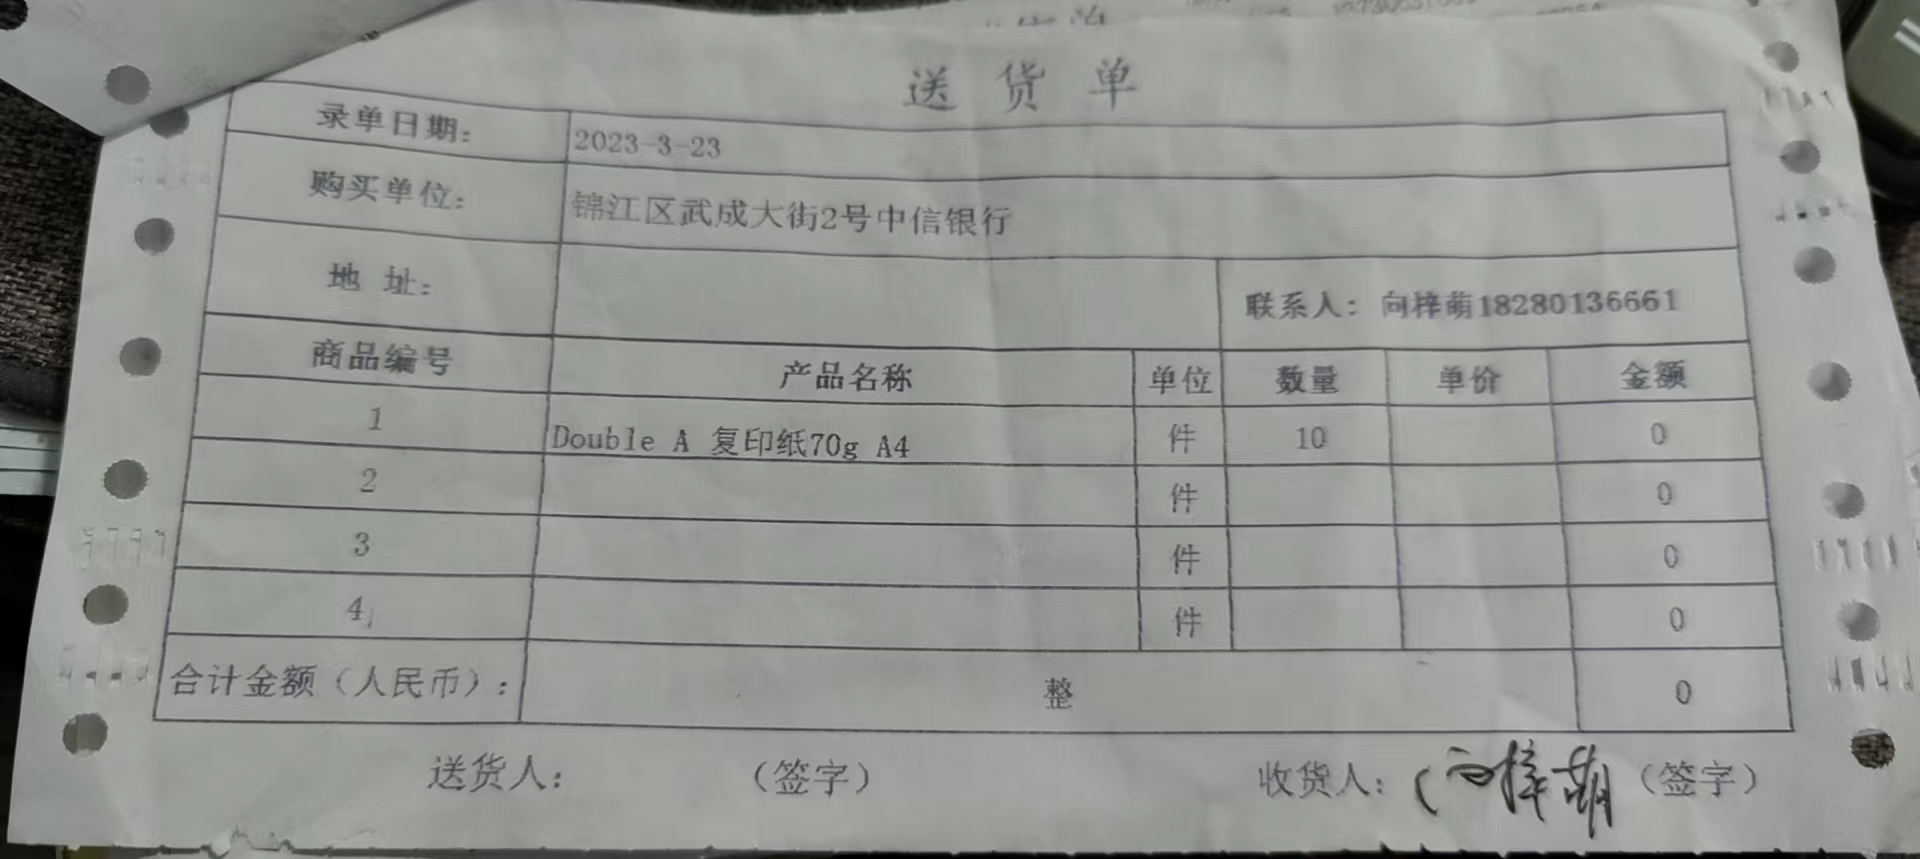 送货单
录单日期: 2023-3-23
购买单位: 锦江区武成大街2号中信银行
地 址: 联系人: 向梓萌18280136661
商品编号 产品名称 单位 数量 单价 金额
1 Double A 复印纸70g A4 件 10 0
2 件 0
3 件 0
4 件 0
合计金额（人民币）: 整 0
送货人: （签字） 收货人: 向梓萌（签字）